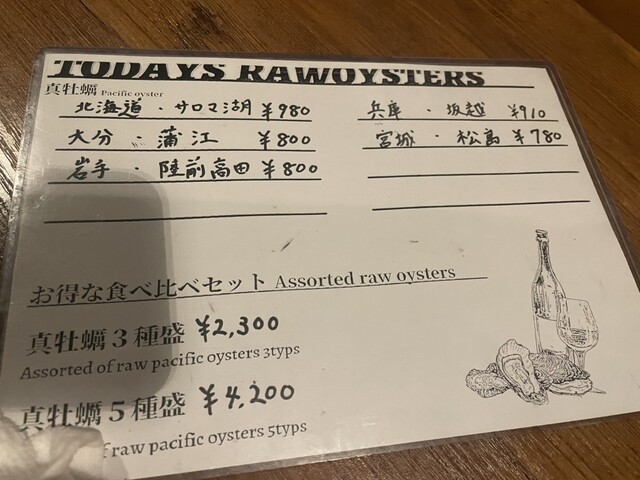 TODAYS RAWOYSTERS
真牡蠣 Pacific oyster
北海道・サロマ湖 ¥980
大分・蒲江 ¥800
岩手・陸前高田 ¥800
兵庫・坂越 ¥910
宮城・松島 ¥780
お得な食べ比べセット Assorted raw oysters
真牡蠣3種盛 ¥2,300
Assorted of raw pacific oysters 3typs
真牡蠣5種盛 ¥4,200
raw pacific oysters 5typs